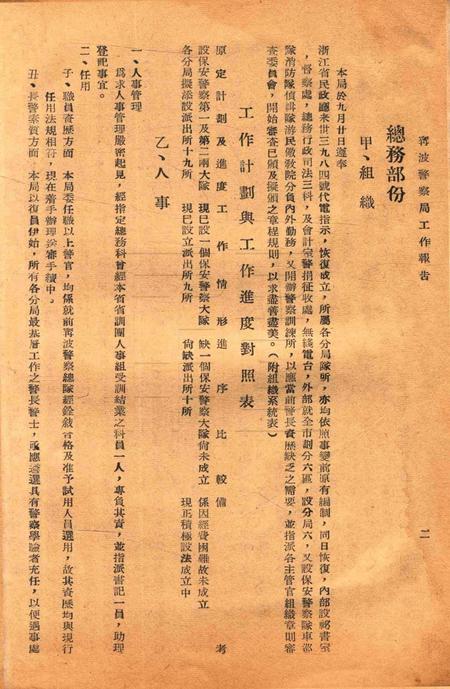 寗波警察局工作報告
二
總務部份
甲、組織
本局於九月廿日遵奉
浙江省民政廳來卅三九八四號代電指示，恢復成立，所屬各分局隊所，亦均依照事變前原有編制，同日恢復，內部設祕書室
，督察處，總務行政司法三科，及會計室警捐征收處，無綫電台，外部就全市劃分六區，設分局六，又設保安警察隊車部
隊消防隊偵緝隊游民敎教院分負內外勤務，又開辦警察訓練所，以應當前警長資歷缺乏之需要，並指派各主管官組織章則審
查委員會，開始審查已頒及擬頒之章程規則，以求盡善盡美。（附組織系統表）
工作計劃與工作進度對照表
原定計劃及進度 工作情形 進序比較 備考
設保安警察第一及第二兩大隊 現已設一個保安警察大隊 缺一個保安警察大隊尙未成立 係因經費困難故未成立
各分局擬添設派出所十九所 現已設立派出所九所 尙缺派出所十所 現正積極設法成立中
乙、人事
一、人事管理
爲求人事管理嚴密起見，經指定總務科曾經本省省訓團人事組受訓結業之科員一人，專負其責，並指派書記一員，助理
登記事宜。
二、任用
子、職員資歷方面 本局委任職以上警官，均係就前寗波警察總隊經銓敍合格及准予試用人員選用，故其資歷均與現行
任用法規相符，現在着手辦理送審手續中。
丑、長警素質方面 本局以復員伊始，所有各分局最基層工作之警長警士，亟應遴選具有警察學驗者充任，以便遇事處